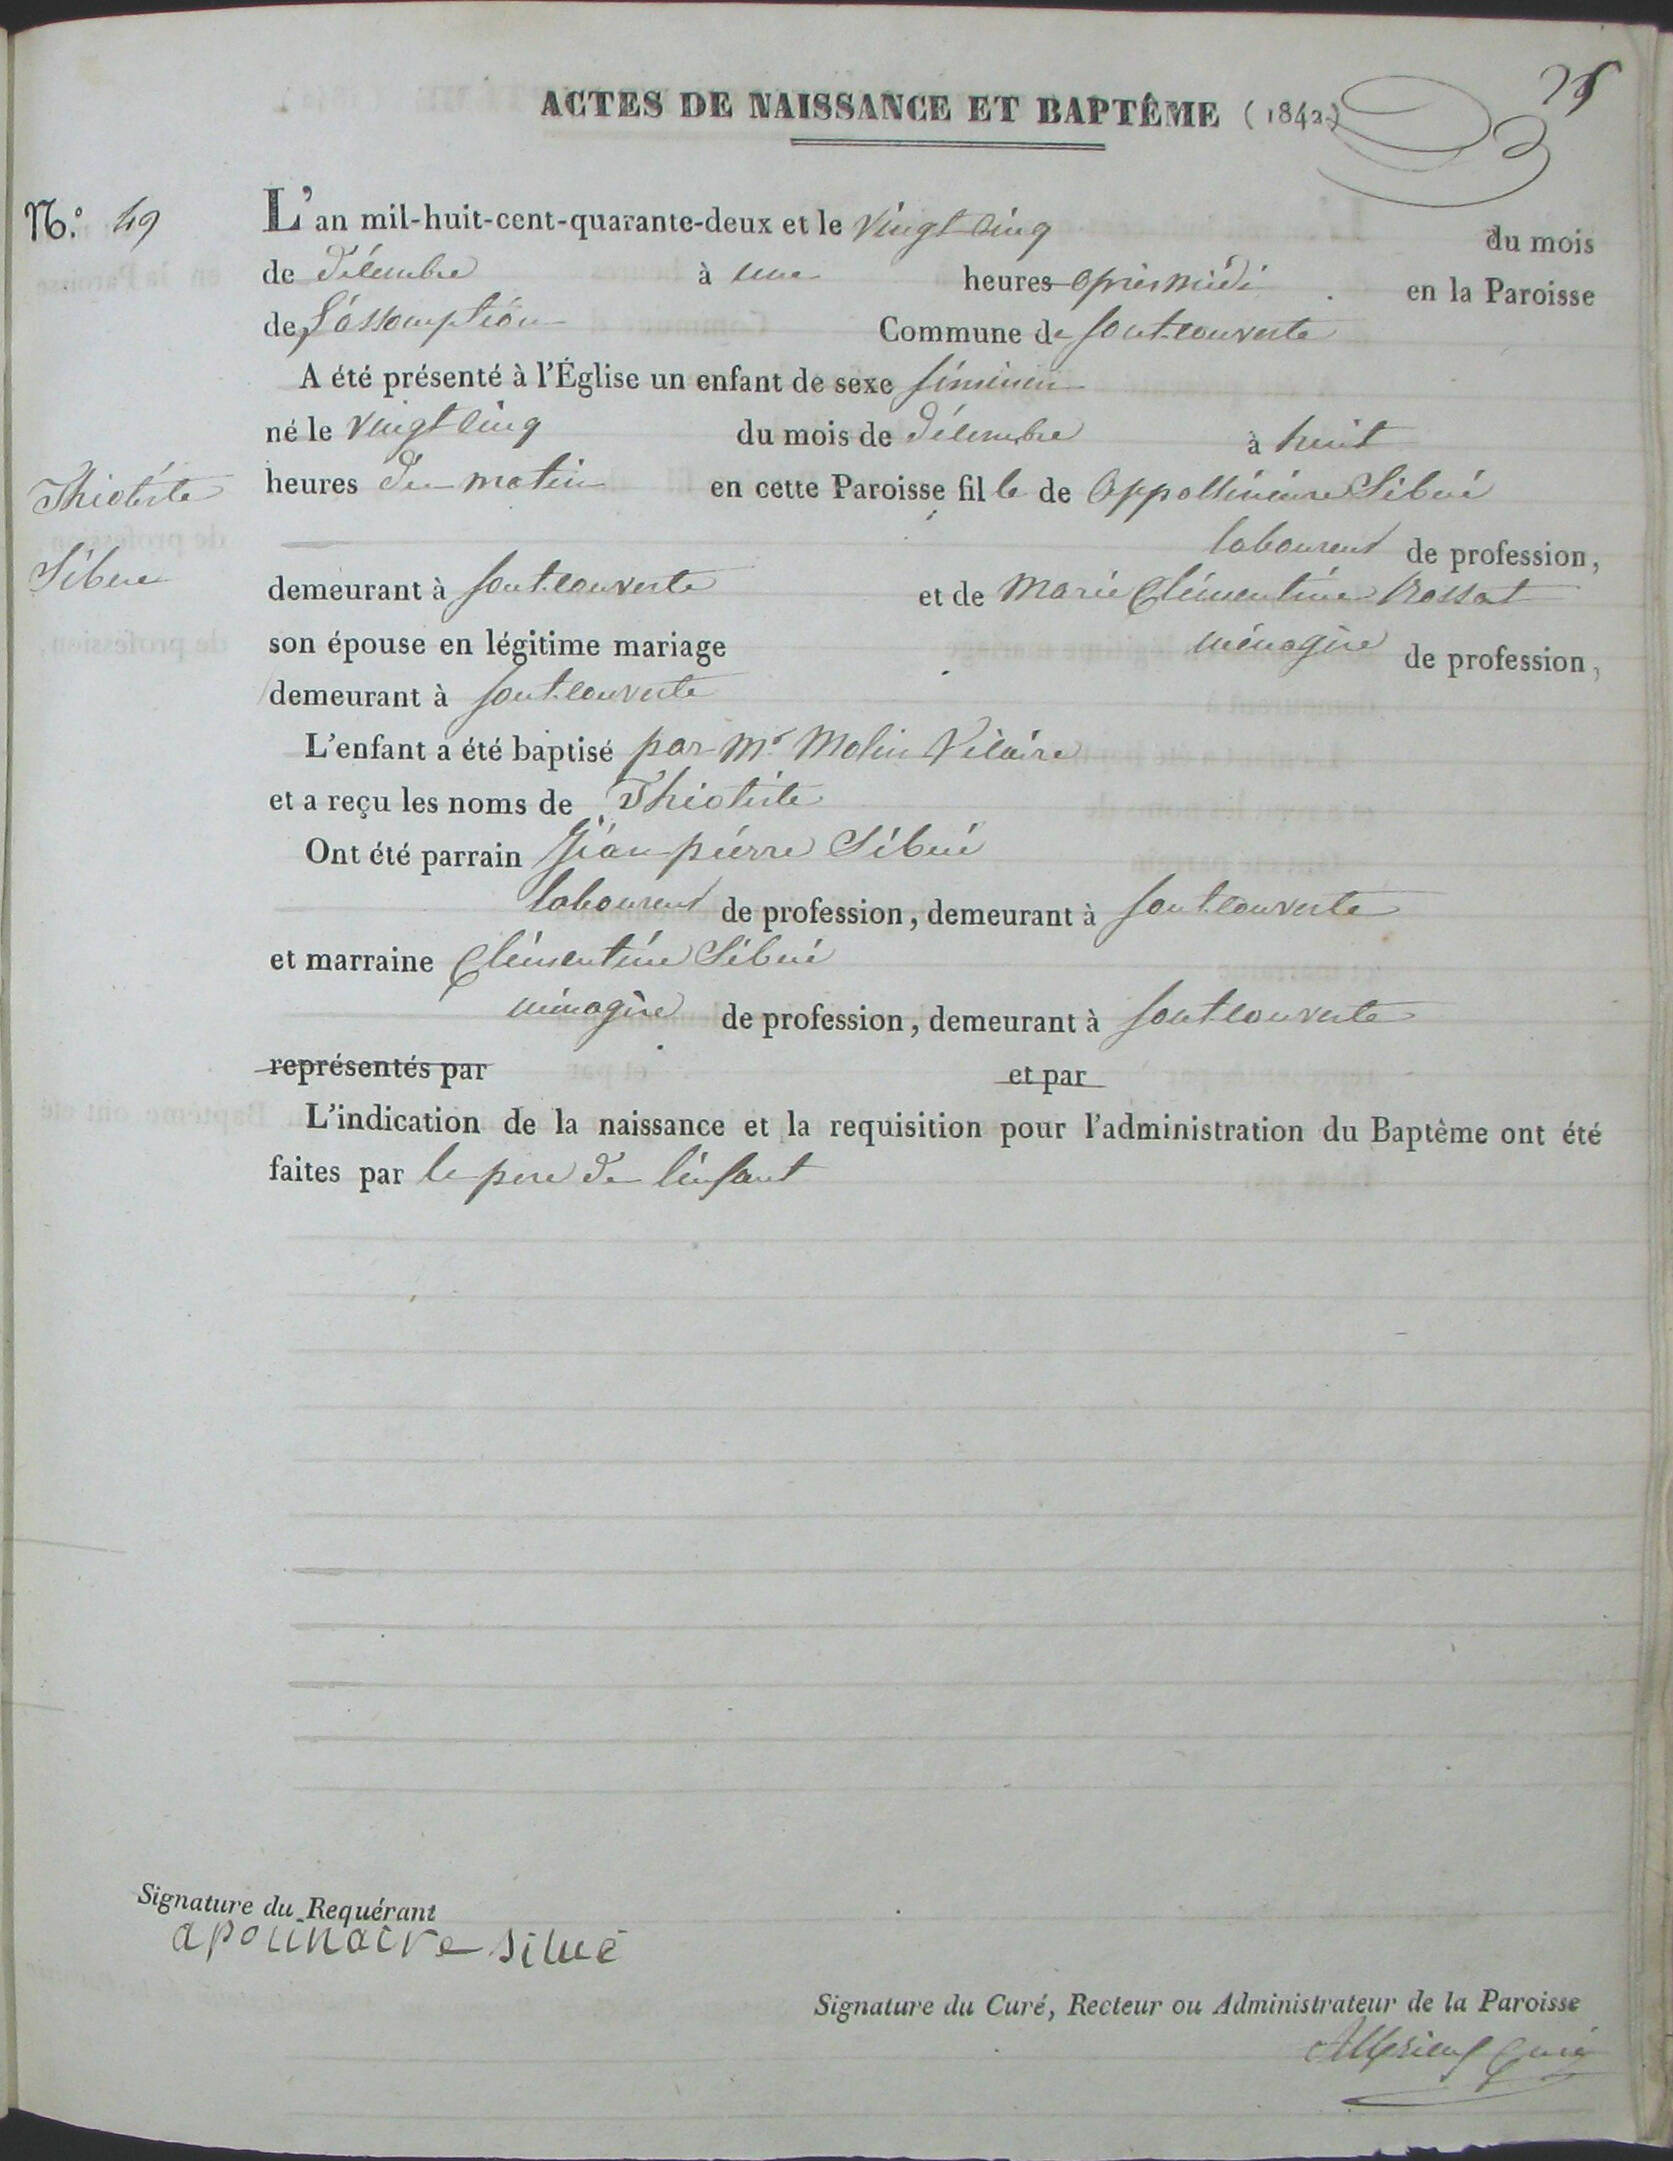 ACTES DE NAISSANCE ET BAPTÊME (1842)
N.º 49
L'an mil-huit-cent-quarante-deux et le vingt cinq du mois
de décembre à une heures après midi en la Paroisse
de L'assomption Commune de fontcouverte
A été présenté à l'Église un enfant de sexe féminin
né le vingt cinq du mois de décembre à huit
heures du matin en cette Paroisse fille de Appollinaire Sibué
laboureur de profession,
Thiotiste
Sibué
demeurant à fontcouverte et de Marie Clémentine Rossat
son épouse en légitime mariage ménagère de profession,
demeurant à fontcouverte
L'enfant a été baptisé par Mr Molin Vicaire
et a reçu les noms de Thiotiste
Ont été parrain Jean pierre Sibué
laboureur de profession, demeurant à fontcouverte
et marraine Clémentine Sibué
ménagère de profession, demeurant à fontcouverte
représentés par et par
L'indication de la naissance et la requisition pour l'administration du Baptême ont été
faites par le pere de l'enfant
Signature du Requérant
apolinaire sibué
Signature du Curé, Recteur ou Administrateur de la Paroisse
Curé